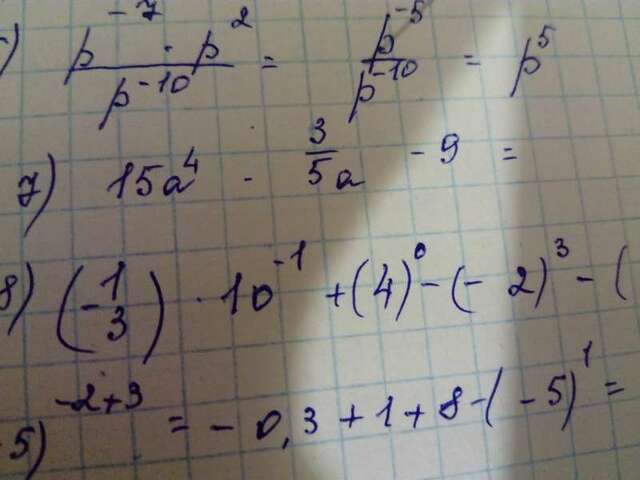 ) p^-7 · p^2 / p^-10 = p^-5 / p^-10 = p^5
7) 15a^4 · 3/5a - 9 =
8) (-1/3) · 10^-1 + (4)^0 - (-2)^3 - (
5)^-2+3 = - 0,3 + 1 + 8 - (-5)^1 =